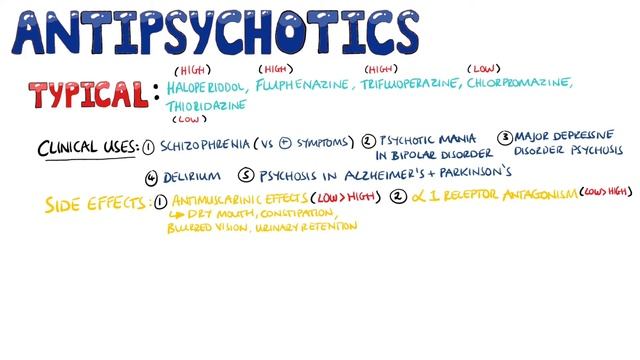 ANTIPSYCHOTICS
(HIGH) (HIGH) (HIGH) (LOW)
TYPICAL: HALOPERIDOL, FLUPHENAZINE, TRIFLUOPERAZINE, CHLORPROMAZINE,
THIORIDAZINE
(LOW)
CLINICAL USES: ① SCHIZOPHRENIA (VS ⊕ SYMPTOMS) ② PSYCHOTIC MANIA ③ MAJOR DEPRESSIVE
IN BIPOLAR DISORDER DISORDER PSYCHOSIS
④ DELIRIUM ⑤ PSYCHOSIS IN ALZHEIMER'S + PARKINSON'S
SIDE EFFECTS: ① ANTIMUSCARINIC EFFECTS (LOW > HIGH) ② α1 RECEPTOR ANTAGONISM (LOW > HIGH)
↳ DRY MOUTH, CONSTIPATION,
BLURRED VISION, URINARY RETENTION